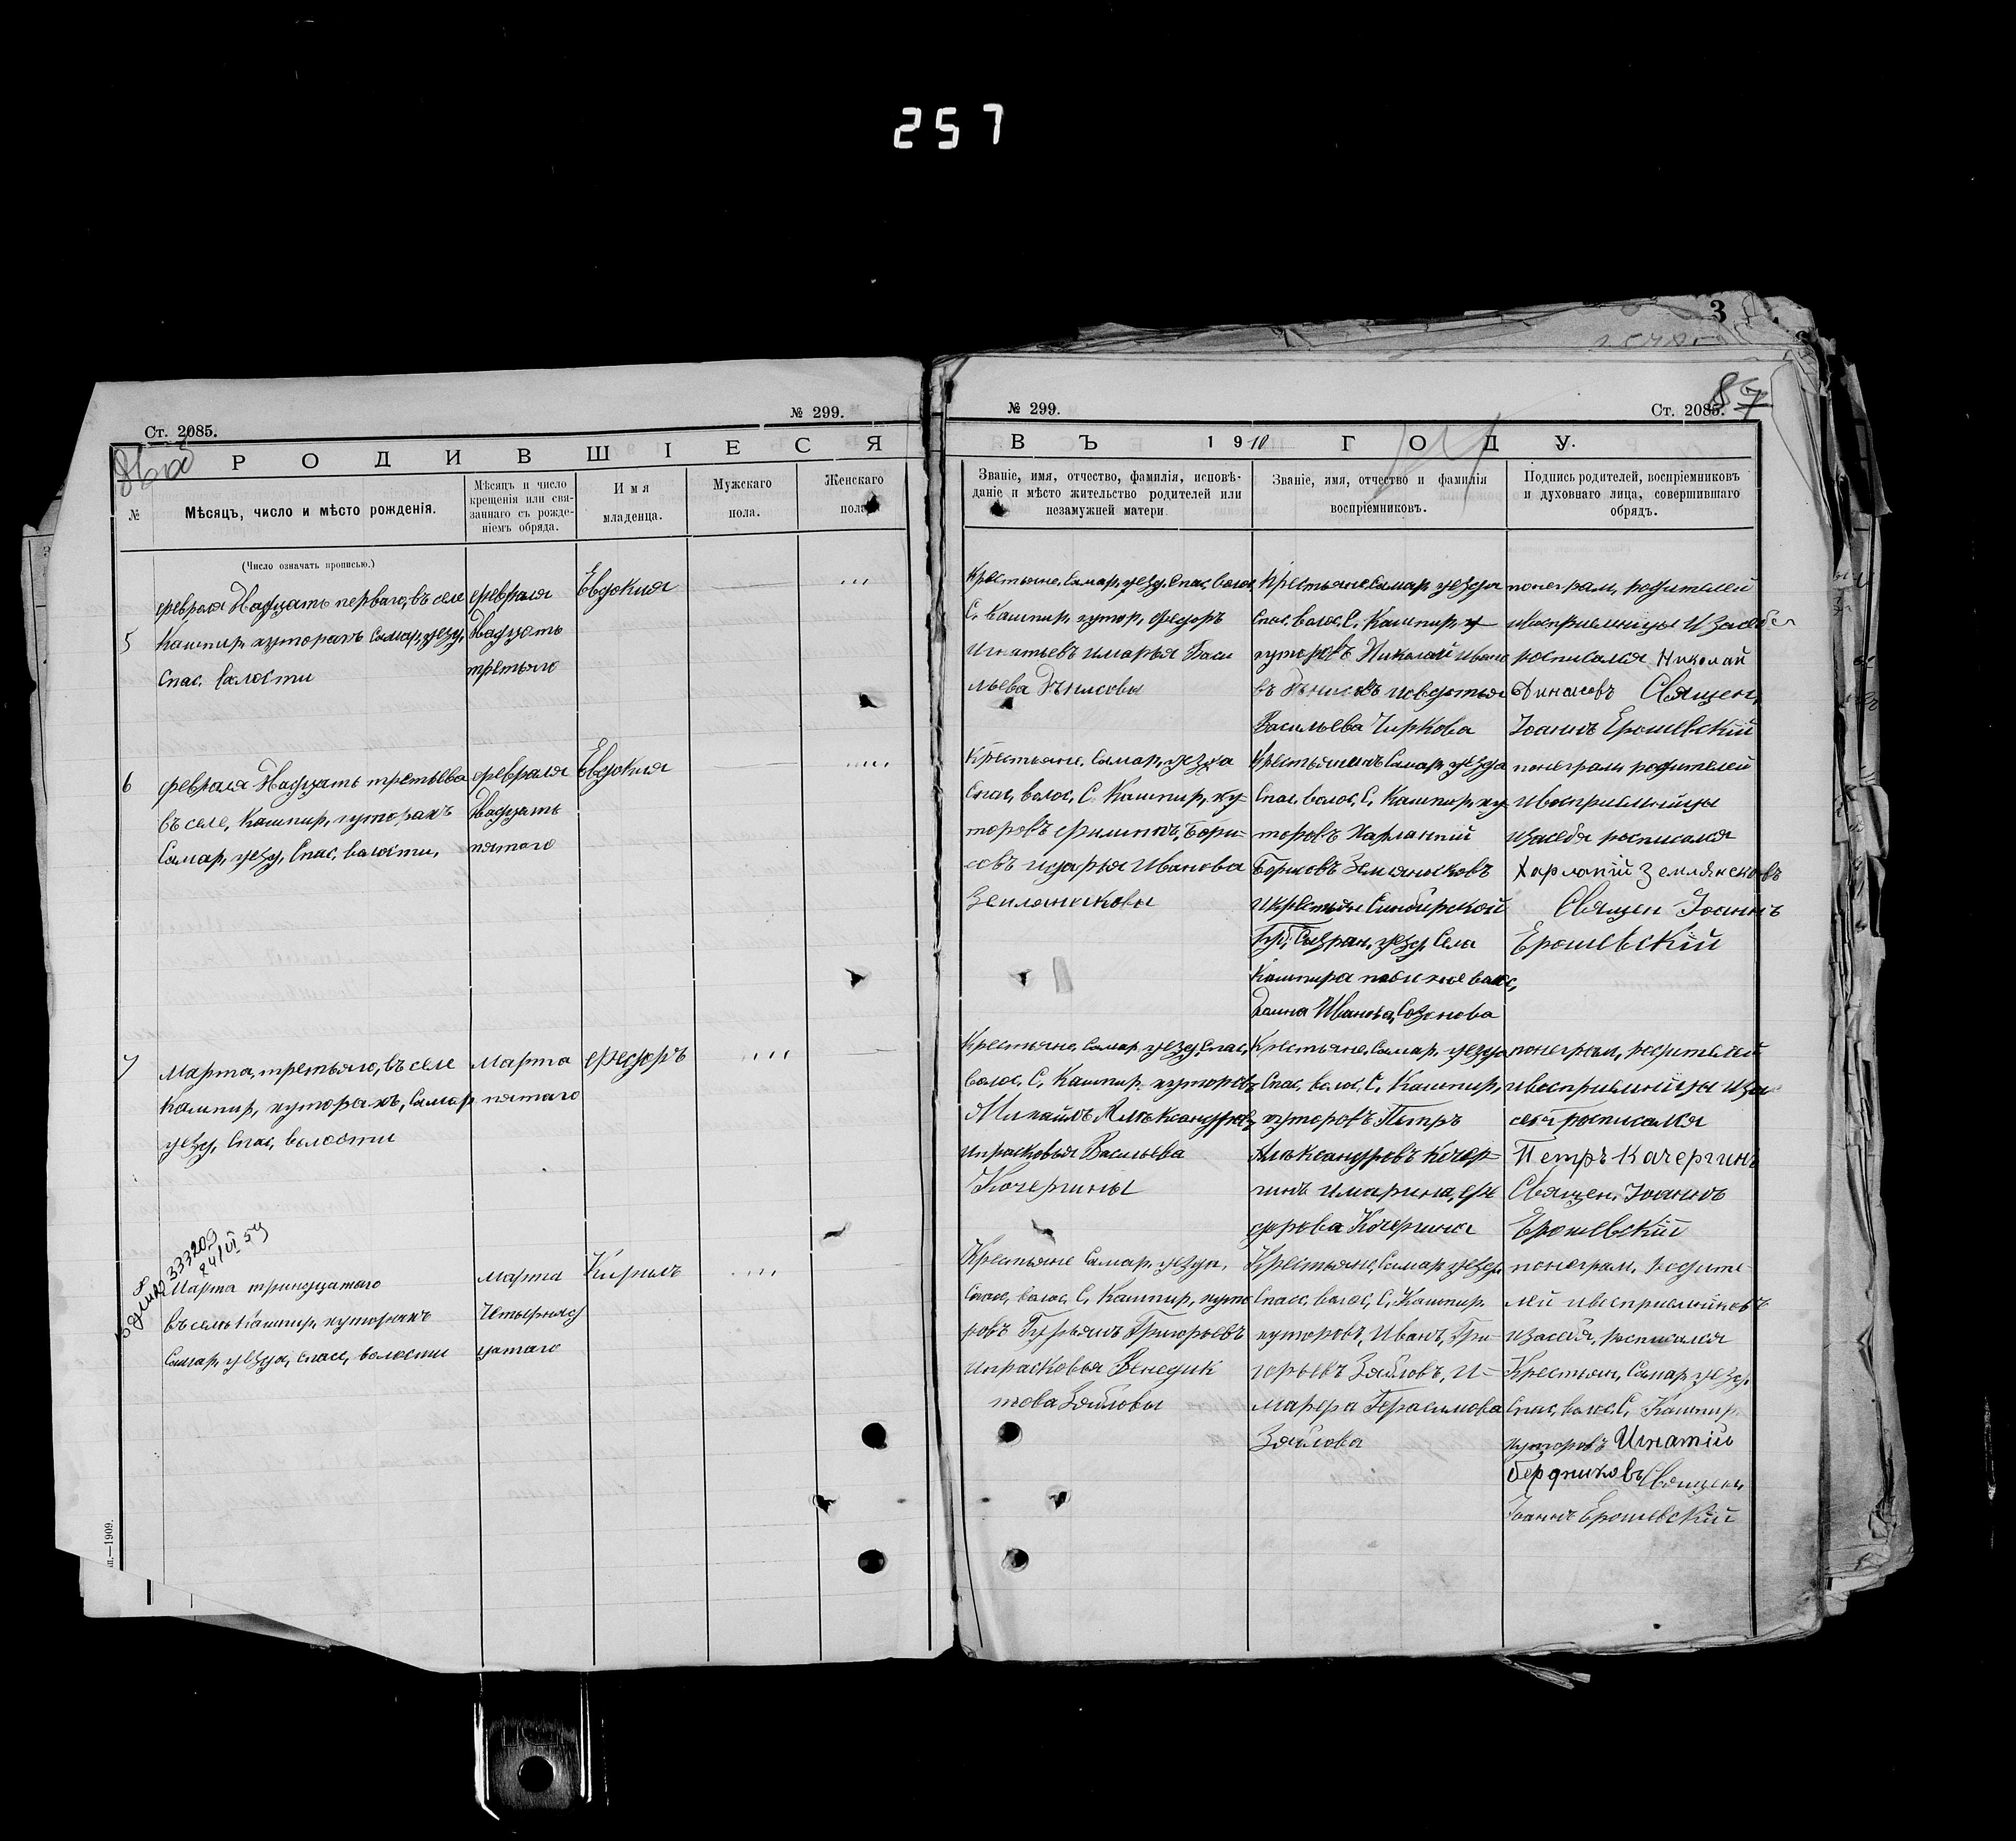 257
3
87
Ст. 2085.
№ 299.
№ 299.
Ст. 2085.
86 об
РОДИВШІЕСЯ
ВЪ 1910 ГОДУ.
№
Мѣсяцъ, число и мѣсто рожденія.
Мѣсяцъ и число
крещенія или свя-
заннаго съ рожде-
ніемъ обряда.
Имя
младенца.
Мужскаго
пола.
Женскаго
пола
Званіе, имя, отчество, фамилія, исповѣ-
даніе и мѣсто жительство родителей или
незамужней матери
Званіе, имя, отчество и фамилія
воспріемниковъ.
Подпись родителей, воспріемниковъ
и духовнаго лица, совершившаго
обрядъ.
(Число означать прописью.)
5
февраля Двадцать перваго, въ селе
Кашпир, хуторахъ Самар, уезд,
Спас. волости
февраля
Двадцать
третьяго
Евдокия
Крестьяне, Самар, уезд, Спас, волос,
С. Кашпир, хутор, Федоръ
Игнатьевъ и марья Васи
льева Дѣнисовы
Крестьяне Самар уезда
Спас, волос, С. Кашпир, х
хуторовъ Николай Ивано
въ Денисовъ и
Васильева Чиркова
понеграм, родителей
и восприемницы и за себя
росписался Николай
Динисовъ Священ,
Іоаннъ Ерошевскій
6
февраля Двадцать третьева
въ селе, Кашпир, хуторахъ
Самар, уезд, Спас, волости,
февраля
Двадцать
пятаго
Евдокия
Крестьяне, Самар, уезда
Спас, волос, С. Кашпир, ху-
торовъ Филиппъ Бори-
совъ и дарья Иванова
Землянсковы
Крестьянинъ Самар, уезда
Спас, волос, С, Кашпир, ху
торовъ Харлампий
Борисовъ Землянсковъ
и крестьян Симбирской
Губ, Сызран, уезд, Села
Кашпира волос,
Иванова, Созонова
понеграм родителей
и восприемницы
и засебя росписался
Харлапій Землянсковъ
Священ Іоаннъ
Ерошевскій
7
Марта, третьяго, въ селе
Кашпир, хуторахъ, Самар
уезд, Спас, волости
Марта
пятаго
Федоръ
Крестьяне, Самар уезд, Спас,
волос, С, Кашпир хуторовъ
Михаилъ Александровъ
и прасковья Васильева
Кочергины
Крестьяне, Самар, уезда
Спас, волос, С, Кашпир,
хуторовъ Петръ
Александровъ Кочер-
гинъ и марина, Фе
дорова Кочергина
понеграм, родителей
и восприемницы и за
себя росписался
Петръ Качергинъ
Священ, Іоаннъ
Ерошевскій
333209
24/VI 59
8
Марта тринадцатаго
въ селе Кашпир, хуторахъ
Самар, уезда, Спасс, волости
марта
Четырнад
цатаго
Кирилъ
Крестьяне Самар, уезда,
Спасс, волос, С, Кашпир, хуто
ровъ Гурьянъ Григорьевъ
и прасковья Венедик
това Зябловы
Крестьяне, Самар уезда
Спасс, волос, С, Кашпир
хуторовъ, Иванъ, Гри-
горьевъ Зябловъ, И-
марфа Герасимова
Зяблова
понеграм, родите-
лей и восприемниковъ
и засебя, росписался
Крестьян, Самар уезд,
Спас, волос, С, Кашпир
хуторовъ Игнатій
Бердниковъ Священ,
Іоаннъ Ерошевскій
—1909.